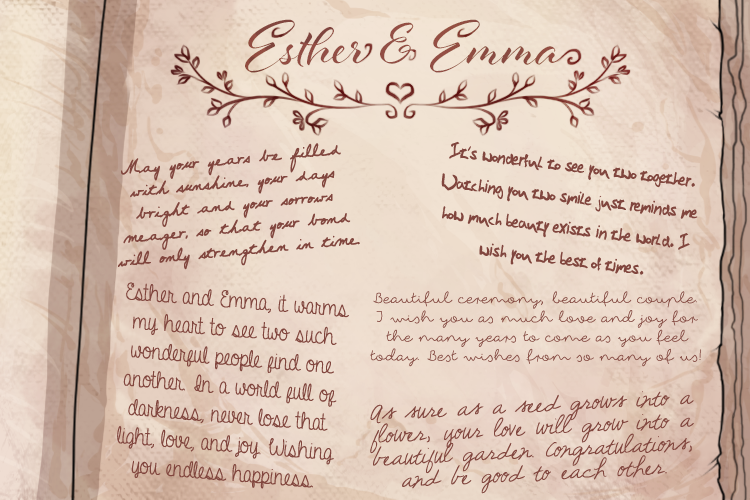 Esther & Emma
May your years be filled
with sunshine, your days
bright and your sorrows
meager, so that your bond
will only strengthen in time.
It's wonderful to see you two together.
Watching you two smile just reminds me
how much beauty exists in the world. I
wish you the best of times.
Esther and Emma, it warms
my heart to see two such
wonderful people find one
another. In a world full of
darkness, never lose that
light, love, and joy. Wishing
you endless happiness.
Beautiful ceremony, beautiful couple.
I wish you as much love and joy for
the many years to come as you feel
today. Best wishes from so many of us!
As sure as a seed grows into a
flower, your love will grow into a
beautiful garden. Congratulations,
and be good to each other.